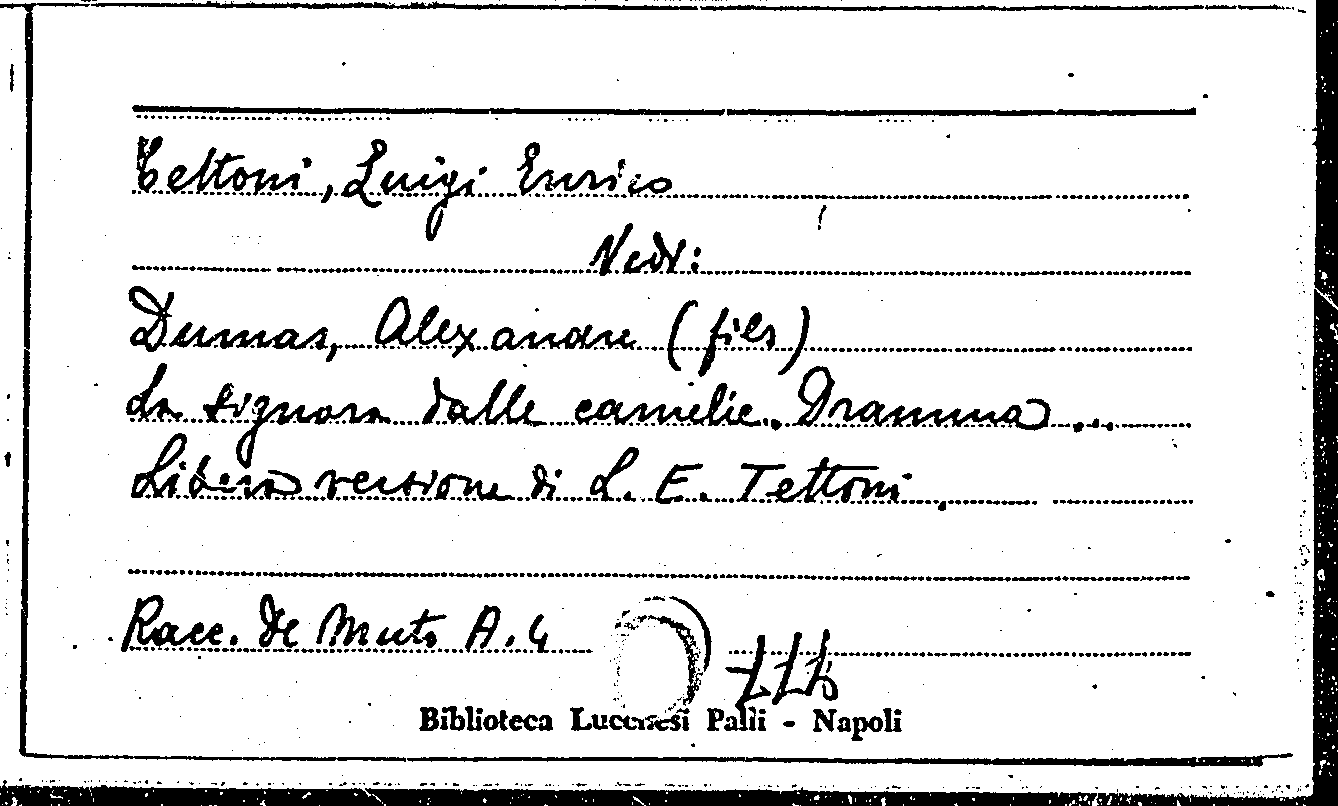 Tettoni, Luigi Enrico
Vedi:
Dumas, Alexandre (fils)
La signora dalle camelie. Dramma ...
Libera versione di L. E. Tettoni.
Racc. De Muto A. 4
Biblioteca Lucchesi Palli - Napoli